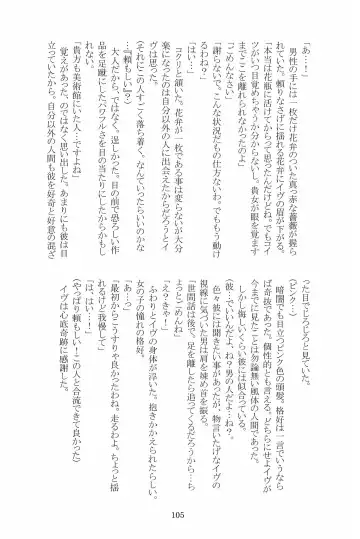 「あ…！」
　男性の手には一枚だけ花弁のついた真っ赤な薔薇が握ら
れていた。頼りなさげに揺れる花弁にイヴの眉が下がる。
「本当は花瓶に活けてから戻って思ったんだけどね。でもコイ
ツがいつ目覚めちゃうか分からないし。貴女が眼を覚ます
までここを離れられなくて」
「ごめんなさい」
「謝らないで。こんな状況だもの仕方ないわ。でももう動け
るわね？」
　コクリと頷いた。花弁が一枚である事は変らないが大分
楽になったのは自分以外の人に出会えたからだろうとイ
ヴは思った。
（それにこの人すごく落ち着く。なんでいったらいいのかな
…『頼もしい』？）
　大人だから、ではなく、逞しかった。目の前で恐ろしい作
品を足蹴にしたパワフルさを目の当たりにしたからかもし
れない。
「貴方も美術館にいた人…ですよね」
　覚えがあった、のではなく思い出した。あまりにも彼は目
立っていたから。自分以外の人間も彼を好奇と好意の混ざ
った目でじろじろと見ていた。
　暗闇でも目立つピンク色の頭髪。格好は一言でいうなら
ば奇抜であった。個性的とも言える。どちらにせよイヴが
今までに見たことは勿論無い風体の人間であった。
　しかし悔しいくらい彼には似合っている。
（彼…でいいんだよ、ね？男の人だよ…ね？）
　色々彼には聞きたい事があったが、物言いたげなイヴの
視線に気づいた男は肩を竦め首を振る。
「世間話は後で。足を離したら追ってくるだろうから…ち
ょっとごめんね」
「え？きゃ！」
　ふわりとイヴの身体が浮いた。抱きかかえられたらしい。
女の子の憧れの格好。
「あ…っ」
「最初からこうすりゃ良かったわね。走るわよ。ちょっと揺
れるけど我慢して」
「は、はい…！」
（やっぱり頼もしい！この人と合流できて良かった）
　イヴは心底奇跡に感謝した。
105